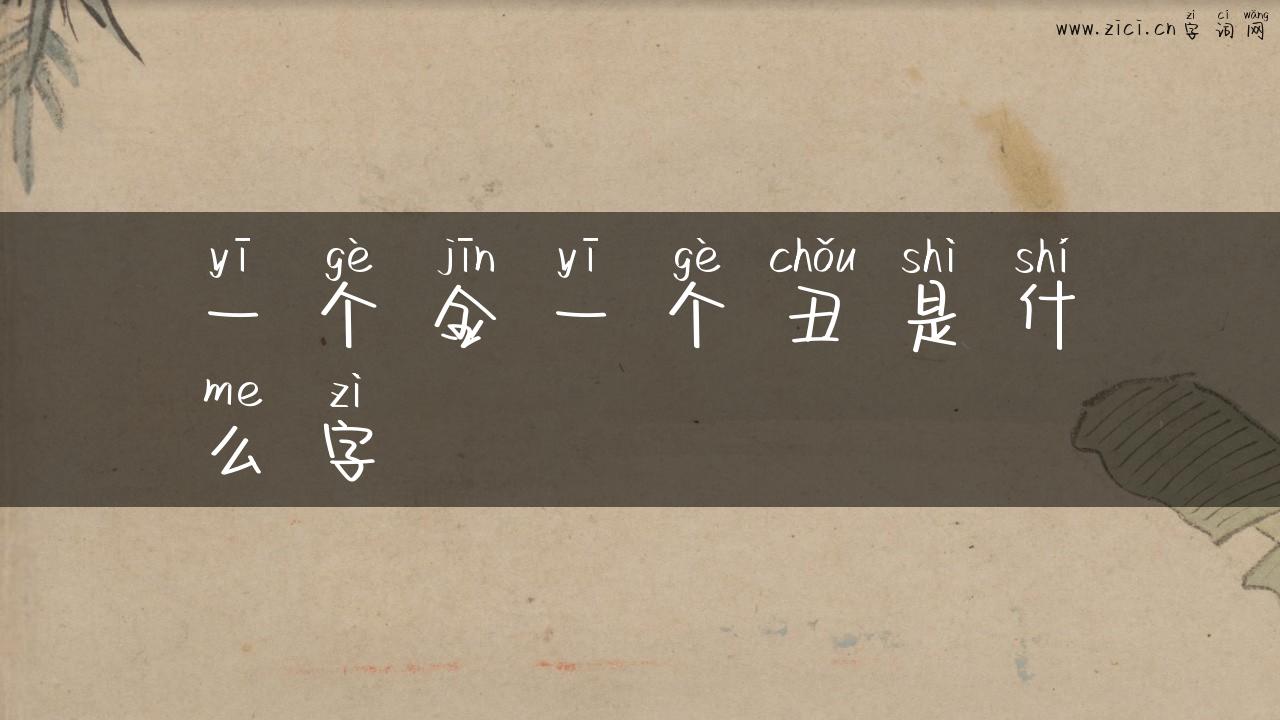 zì cí wǎng
www.zici.cn 字词网
yī gè jīn yī gè chǒu shì shí
一个金一个丑是什
me zì
么字